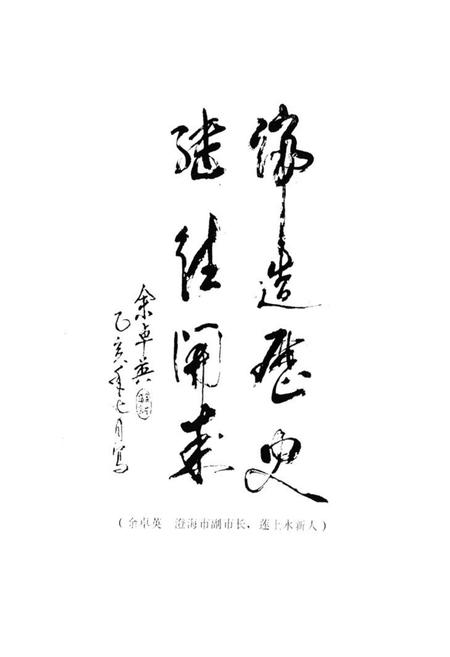 缔造历史
继往開来
余卓英
乙亥年七月写
(余卓英 澄海市副市长，莲上永新人)